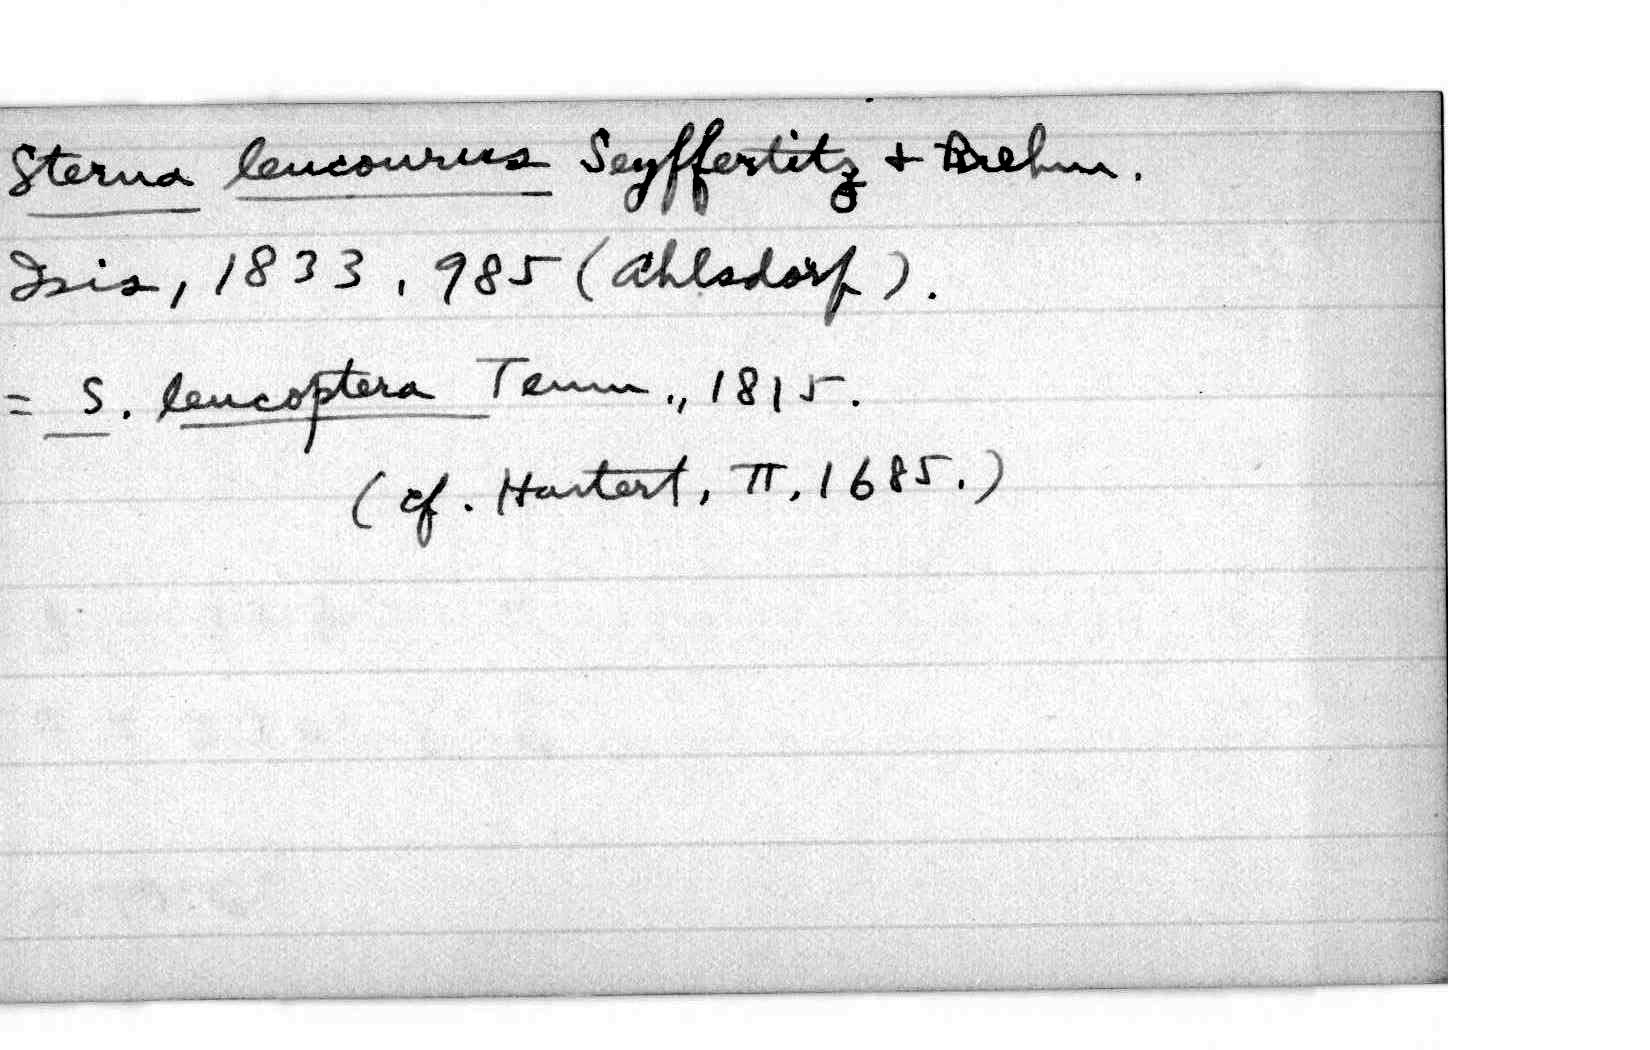 Sterna leucourus Seyffertitz + Brehm.
Isis, 1833, 985 (Ahlsdorf).
= S. leucoptera Temm., 1815.
(cf. Hartert, II, 1685.)